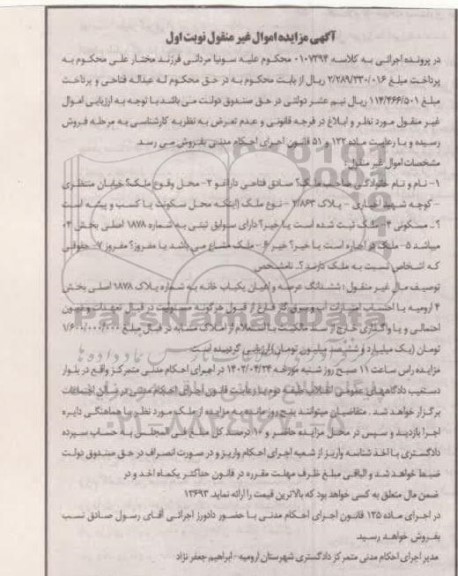 آگهی مزایده اموال غیر منقول نوبت اول
در پرونده اجرائی به کلاسه ۰۱۰۷۳۹۴ محکوم علیه سونیا مردانی فرزند مختار علی محکوم به
پرداخت مبلغ ۲/۲۸۹/۳۳۰/۰۱۶ ریال از بابت محکوم به در حق محکوم له عبداله فتاحی و پرداخت
مبلغ ۱۱۴/۴۶۶/۵۰۱ ریال نیم عشر دولتی در حق صندوق دولت می باشد با توجه به ارزیابی اموال
غیر منقول مورد نظر و ابلاغ در فرجه قانونی و عدم تعرض به نظریه کارشناسی به مرحله فروش
رسیده و با رعایت ماده ۱۳۲ و ۵۱ قانون اجرای احکام مدنی بفروش می رسد.
مشخصات اموال غیر منقول:
۱- نام و نام خانوادگی صاحب ملک؟ صادق فتاحی ۲- محل وقوع ملک؟ خیابان منتظری
- کوچه شهید - پلاک ۲/۸۶۳ - نوع ملک (اینکه محل سکونت یا کسب و پیشه است
؟- مسکونی ۴- ملک ثبت شده است یا خیر؟ دارای سوابق ثبتی به شماره ۱۸۷۸ اصلی بخش ۰۴
میباشد ۵- ملک در اجاره است یا خیر؟ خیر ۶- ملک مشاع می باشد یا مفروز؟ مفروز ۷- حقوقی
که اشخاص نسبت به ملک دارند؟.. نامشخص
توصیف مال غیر منقول: ششدانگ عرصه و اعیان یکباب خانه به شماره پلاک ۱۸۷۸ اصلی بخش
۴ ارومیه با احتساب امتیازات از قبول هرگونه مسئولیت در قبال تعهدات و دیون
احتمالی و یا واگذاری خارج از سند مالکیت با استعلام از املاک مشابه در قبال مبلغ ۱/۶۰۰/۰۰۰/۰۰۰
تومان (یک میلیارد و ششصد میلیون تومان) ارزیابی گردیده است
مزایده راس ساعت ۱۱ صبح روز شنبه مورخه ۱۴۰۲/۰۴/۲۴ در اجرای احکام مدنی متمرکز واقع در بلوار
دستغیب دادگاههای عمومی انقلاب طبقه دوم با رعایت قانون اجرای احکام مدنی در سالن اجتماعات
برگزار خواهد شد. متقاضیان میتوانند پنج روز مانده به مزایده از ملک مورد نظر با هماهنگی دایره
اجرا بازدید و سپس در محل مزایده حاضر و ۱۰ درصد کل مبلغ فی المجلس به حساب سپرده
دادگستری با اخذ شناسه واریز از شعبه اجرای احکام واریز و در صورت انصراف در حق صندوق دولت
ضبط خواهد شد و الباقی مبلغ ظرف مهلت مقرره در قانون حداکثر یکماه اخذ و در
ضمن مال متعلق به کسی خواهد بود که بالاترین قیمت را ارائه نماید ۱۳۶۹۳
در اجرای ماده ۱۲۵ قانون اجرای احکام مدنی با حضور دادورز اجرائی آقای رسول صادق نسب
بفروش خواهد رسید.
مدیر اجرای احکام مدنی متمرکز دادگستری شهرستان ارومیه - ابراهیم جعفر نژاد
ParsNamadData
۰۲۱-۸۸۳۴۹۶۷۰-۵